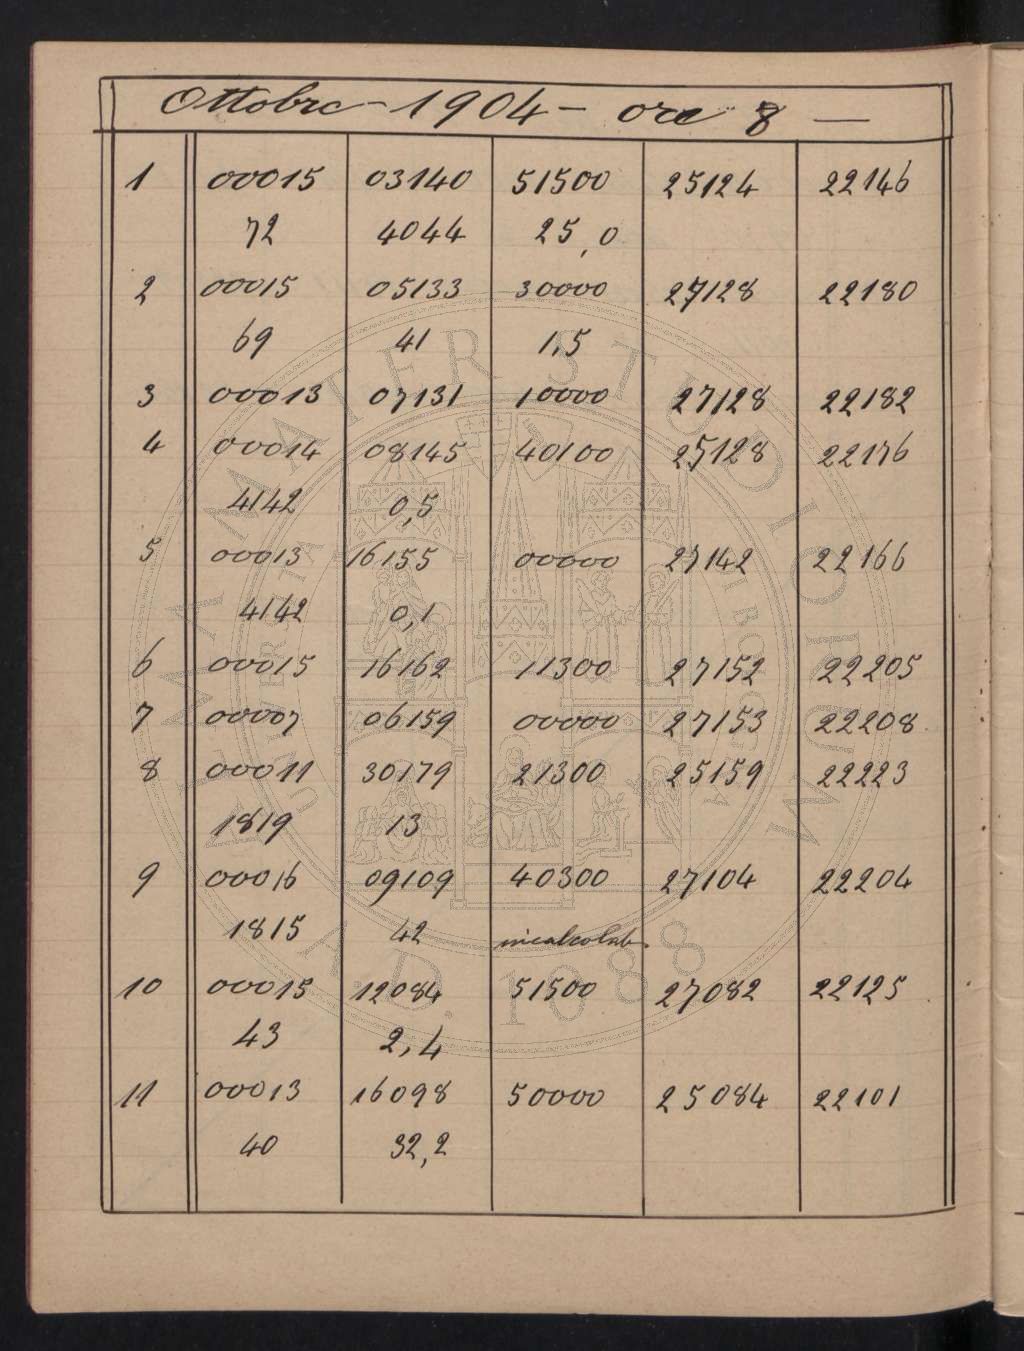 Ottobre - 1904 - ore 8 —
1 00015 03140 51500 25124 22146
72 4044 25,0
2 00015 05133 30000 27128 22180
69 41 1,5
3 00013 07131 10000 27128 22182
4 00014 08145 40100 25128 22176
4142 0,5
5 00013 16155 00000 27142 22166
4142 0,1
6 00015 16162 11300 27152 22205
7 00007 06159 00000 27153 22208
8 00011 30179 21300 25159 22223
1819 13
9 00016 09109 40300 27104 22204
1815 42 incalcolab.
10 00015 12084 51500 27082 22125
43 2,4
11 00013 16098 50000 25084 22101
40 32,2
ALMA MATER STUDIORUM
A.D. 1088